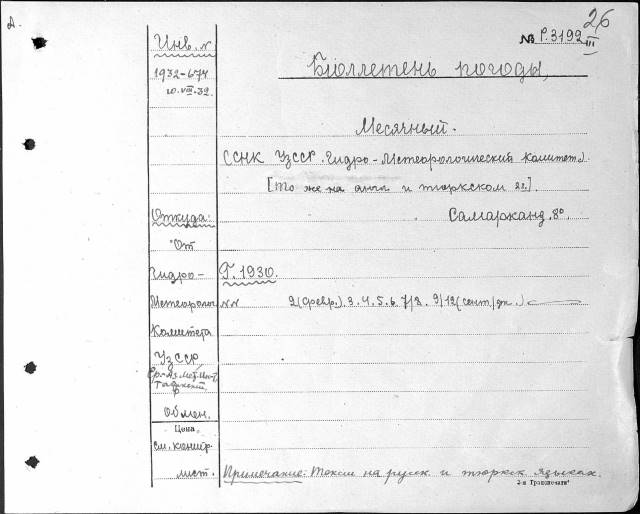 26
Инв. N
№ Р.3192 III
1932-674
10.VIII.32.
Бюллетень погоды,
Месячный.
(СНК УзССР. Гидро-Метеорологический Комитет).
[То же на англ и тюркском яз.].
Откуда:
Самарканд. 8º.
От
Гидро-
Г. 1930.
Метеоролог.
NN 2(февр.). 3. 4. 5. 6. 7/8. 9/12(сент/дк.)
Комитета
УзССР
Ср.-Аз. Мет. Инст.
Ташкент.
Обмен.
Цена
см. контр.
лист.
Примечание: Текст на русск и тюркск языках.
2-я Транспечати